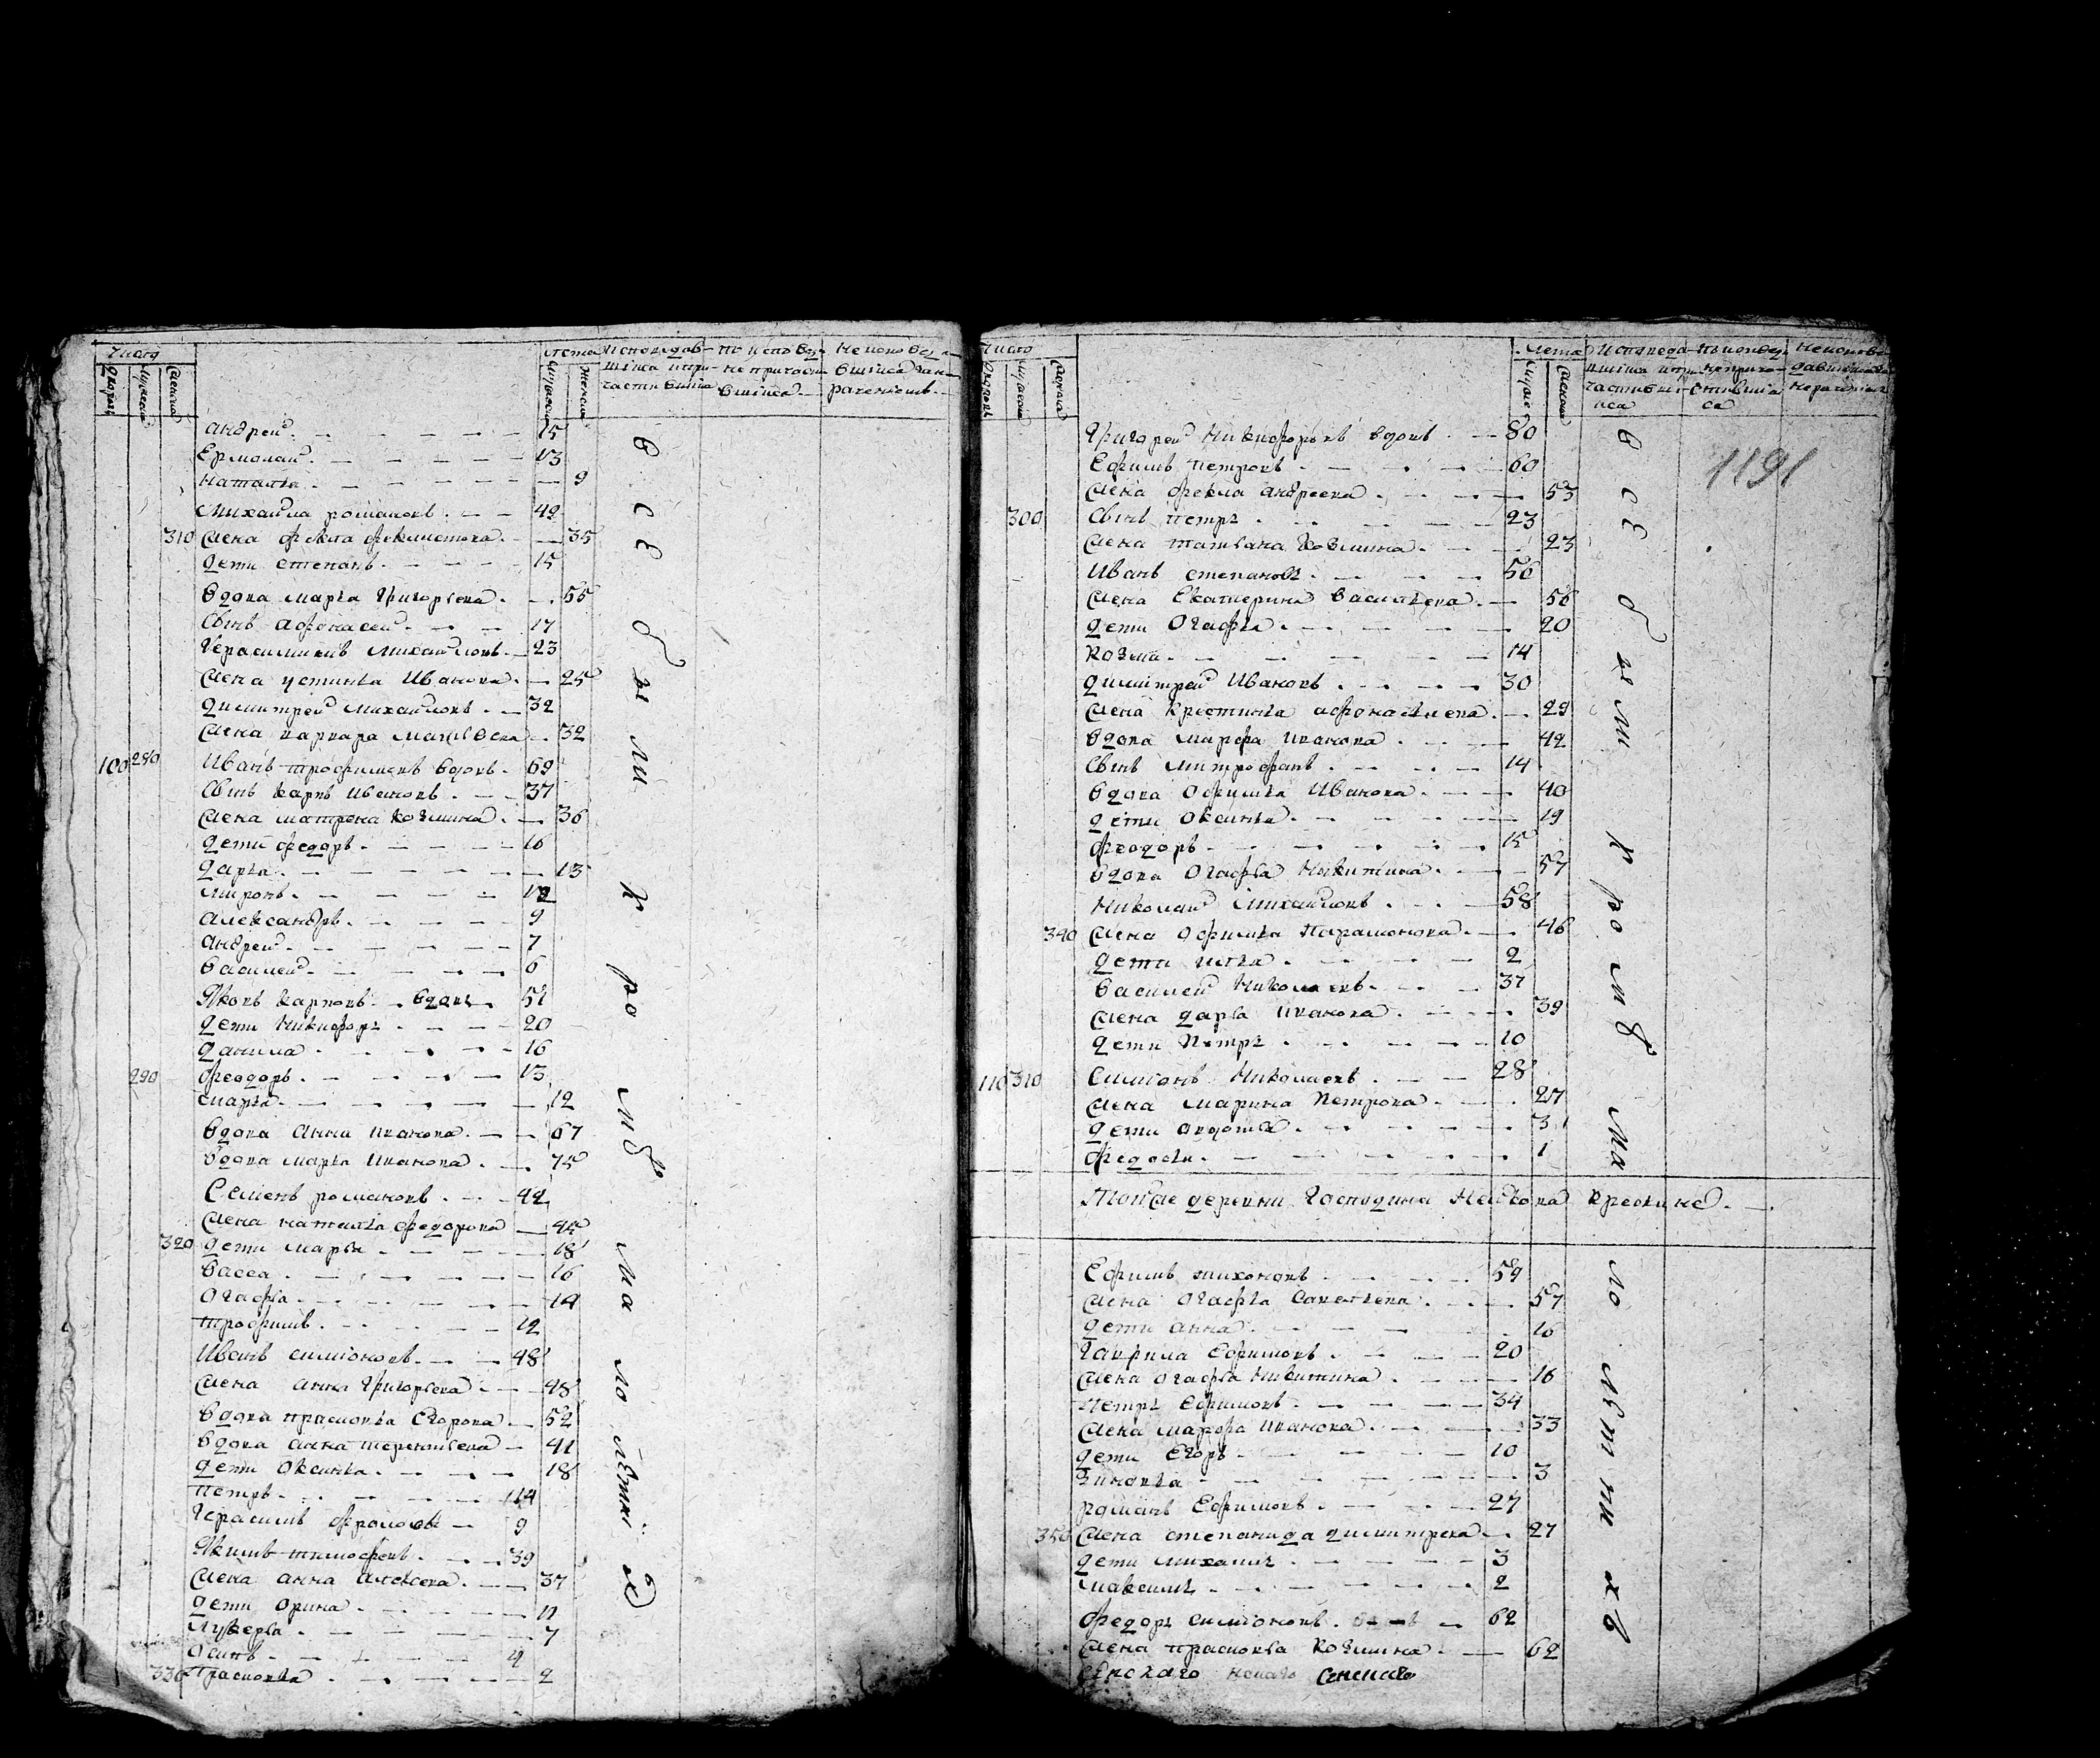 Число
Лета
Андреи 15
Ермолаи 13
Наталья 9
Михаила романовъ 42
310 Жена фекла феклистова 35
Дети степанъ 15
Вдова марья Григорьева 55
Сынъ афонасеи 17
Герасим Михаиловъ 23
Жена устинья Иванова 25
Димитреи михаиловъ 32
Жена варвара Матвѣева 32
100 280 Иванъ трофимовъ вдовъ 69
Сынъ карпъ ивановъ 37
Жена матрена козмина 36
Дети федоръ 16
Дарья 13
Миронъ
Александръ 9
Андреи 7
Василеи 6
Яковъ карповъ вдовъ 51
Дети Никифоръ 20
Данила 16
290 Феодоръ 13
Марья 12
Вдова Анна иванова 67
Вдова марья иванова 75
Семенъ романовъ 42
Жена наталья федорова 45
320 Дети марья 18
Васса 16
Огафья 14
Трофимъ 12
Иванъ симионовъ 48
Жена анна Григорьева 48
Вдова прасковья Егорова 52
Вдова анна терентьева 41
Дети Оксинья 18
Петръ 14
Герасимъ фроловъ 9
Якимъ тимофеевъ 39
Жена анна алексеева 37
Дети орина 11
Лукерья 7
Осипъ 4
330 Прасковья 2
всѣ были кромѣ малолѣтних
Число
Лета
1191
Григореи Никифоровъ вдовъ 80
Ефимъ петровъ 60
Жена фекла андреева 53
300 Сынъ петръ 23
Жена татьяна козмина 23
Иванъ степановъ 56
Жена Екатерина васильева 56
Дети Огафья 20
Козма 14
Димитреи Ивановъ 30
Жена крестинья афонасьева 29
Вдова марфа иванова 42
Сынъ митрофанъ 14
Вдова Офимья Иванова 40
Дети Оксинья 19
Феодоръ 15
Вдова Огафья Никитина 57
Николаи михаиловъ 58
340 Жена Офимья Парамонова 46
Дети илья 2
Василеи Николаевъ 37
Жена дарья иванова 39
Дети Петръ 10
110 310 Симионъ Николаевъ 28
Жена Марина Петрова 27
Дети авдотья 3
Федосья 1
Тойже деревни Господина крестьяне
Ефимъ тихоновъ 59
Жена Огафья савельева 57
Дети анна 16
Гаврила Ефимовъ 20
Жена огафья никитина 16
Петръ Ефимовъ 34
Жена марфа иванова 33
Дети Егоръ 10
Зиновья 3
Романъ Ефимовъ 27
350 Жена степанида димитрева 27
Дети михаилъ 3
Максимъ 2
Федоръ симионовъ 62
Жена прасковья козмина 62
всѣ были кромѣ малолѣтнихъ